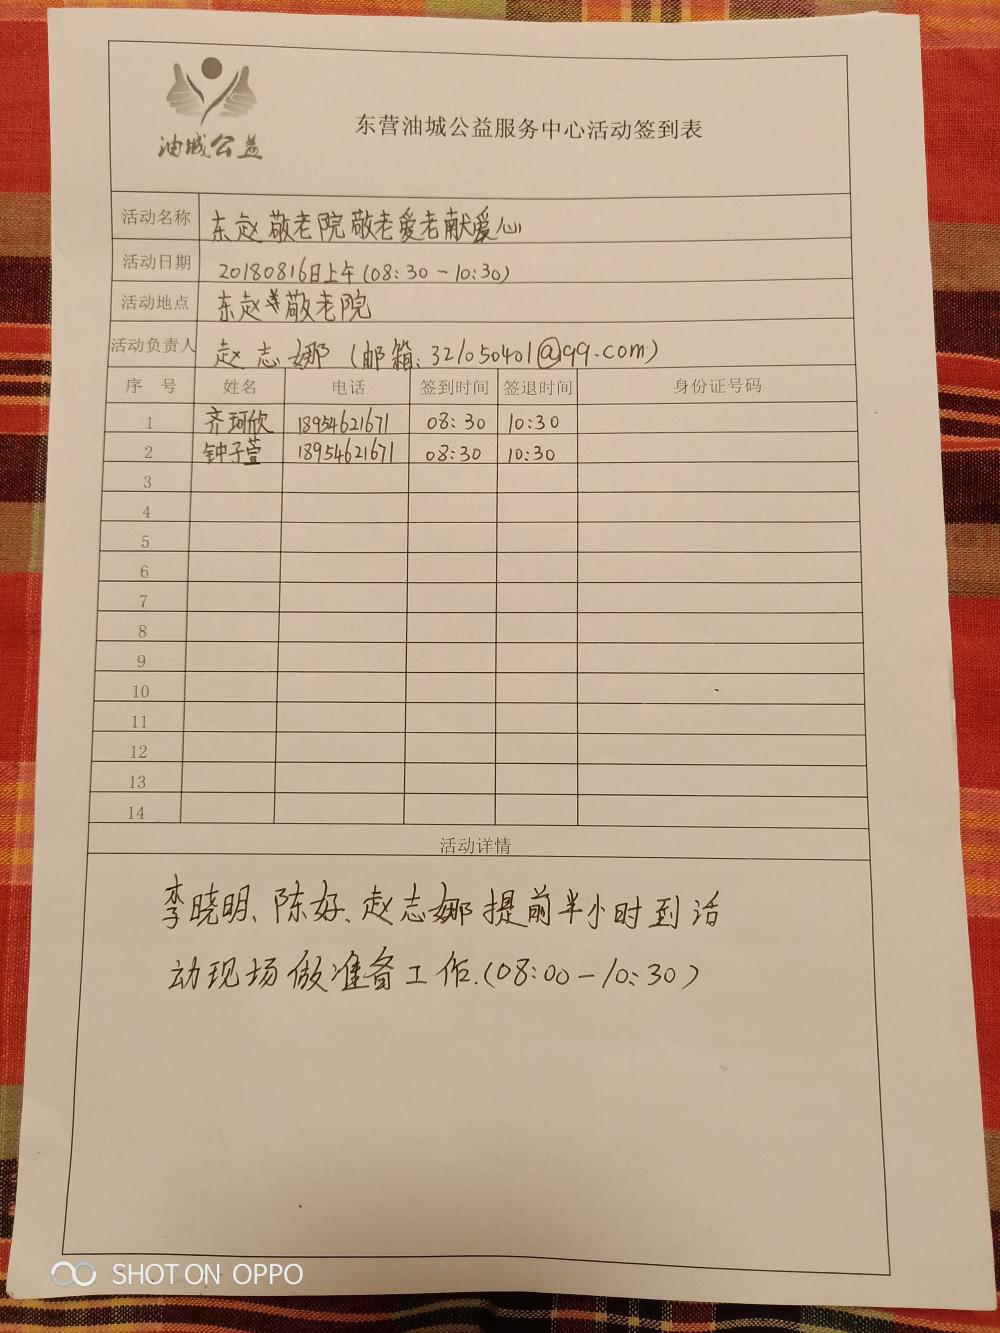 油城公益
东营油城公益服务中心活动签到表
活动名称 东赵敬老院敬老爱老献爱心
活动日期 20180816日上午(08:30-10:30)
活动地点 东赵敬老院
活动负责人 赵志娜(邮箱:321050401@qq.com)
序 号 姓名 电话 签到时间 签退时间 身份证号码
1 齐珂欣 18954621671 08:30 10:30
2 钟子萱 18954621671 08:30 10:30
3
4
5
6
7
8
9
10
11
12
13
14
活动详情
李晓明、陈好、赵志娜提前半小时到活
动现场做准备工作.(08:00-10:30)
SHOT ON OPPO